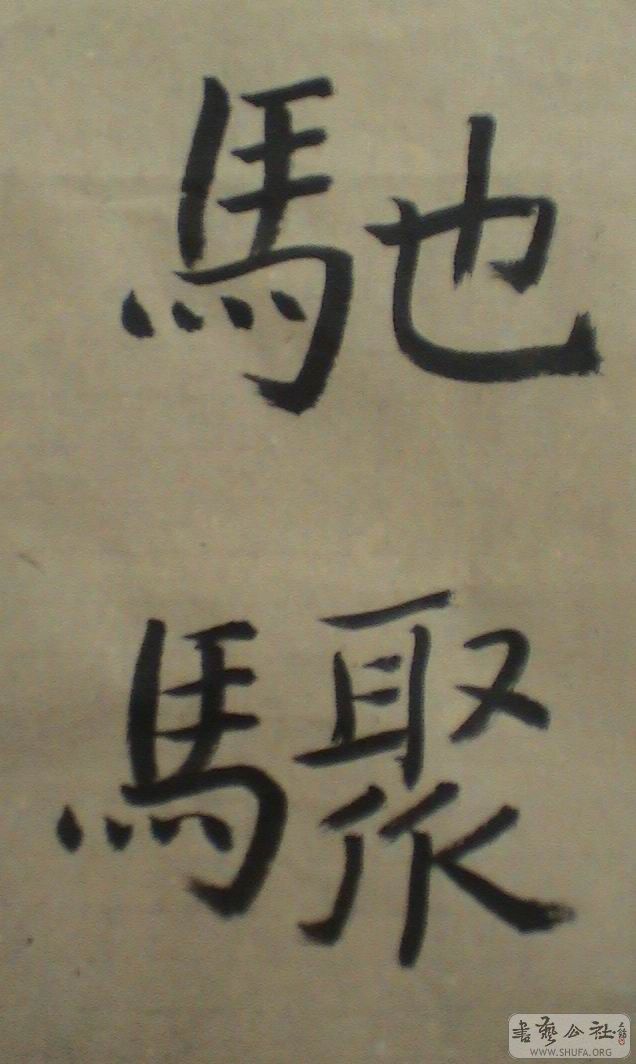 馳
驟
書藝公社
WWW.SHUFA.ORG